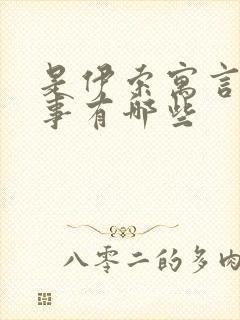 是伊索寓言
事有哪些
八零二的多肉